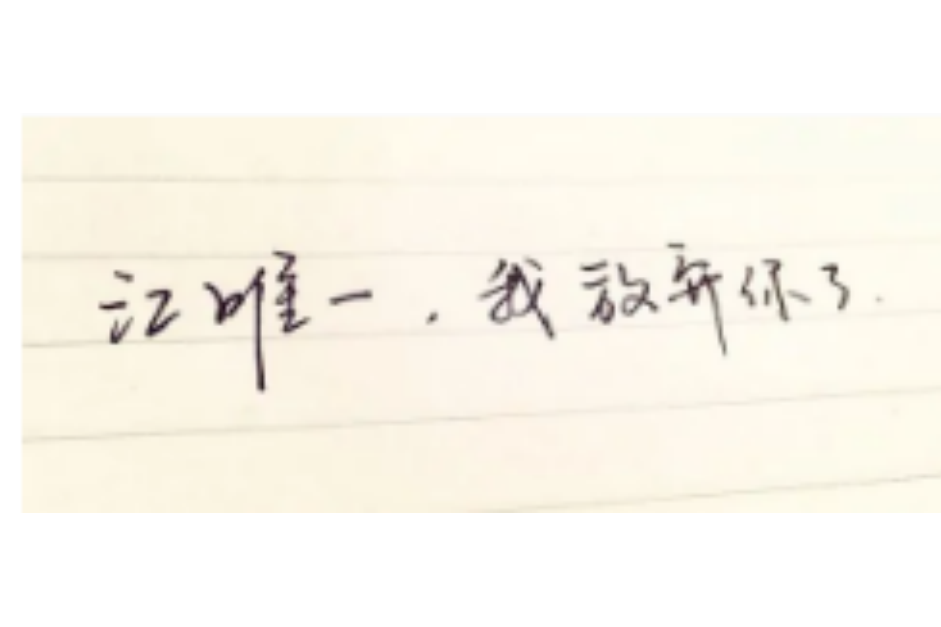 江唯一.我放弃你了.